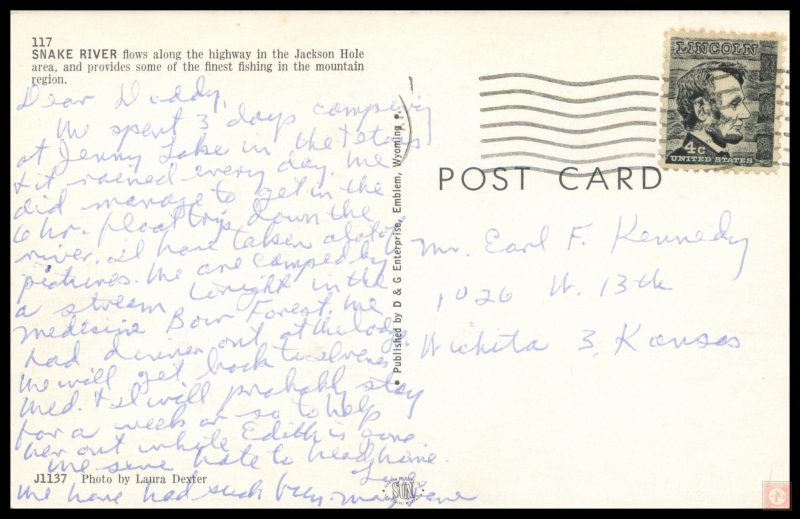 117
SNAKE RIVER flows along the highway in the Jackson Hole
area, and provides some of the finest fishing in the mountain
region.
Dear Daddy,
We spent 3 days camping
at Jenny Lake in the Tetons
& it rained every day. We
did manage to get in the
6 hr. float trip down the
river. I have taken a lot of
pictures. We are camped by
a stream tonight in the
medicine Bow Forest. We
had dinner out at the lodge.
We will get back to
Wed. & I will probably stay
for a week or so to help
her out while Edith is gone.
We sure hate to head home.
We have had such fun.
J1137 Photo by Laura Dexter
• Published by D & G Enterprise, Emblem, Wyoming •
SUN
POST CARD
LINCOLN
4c
UNITED STATES
Mr. Earl F. Kennedy
1026 W. 13th
Wichita 3, Kansas